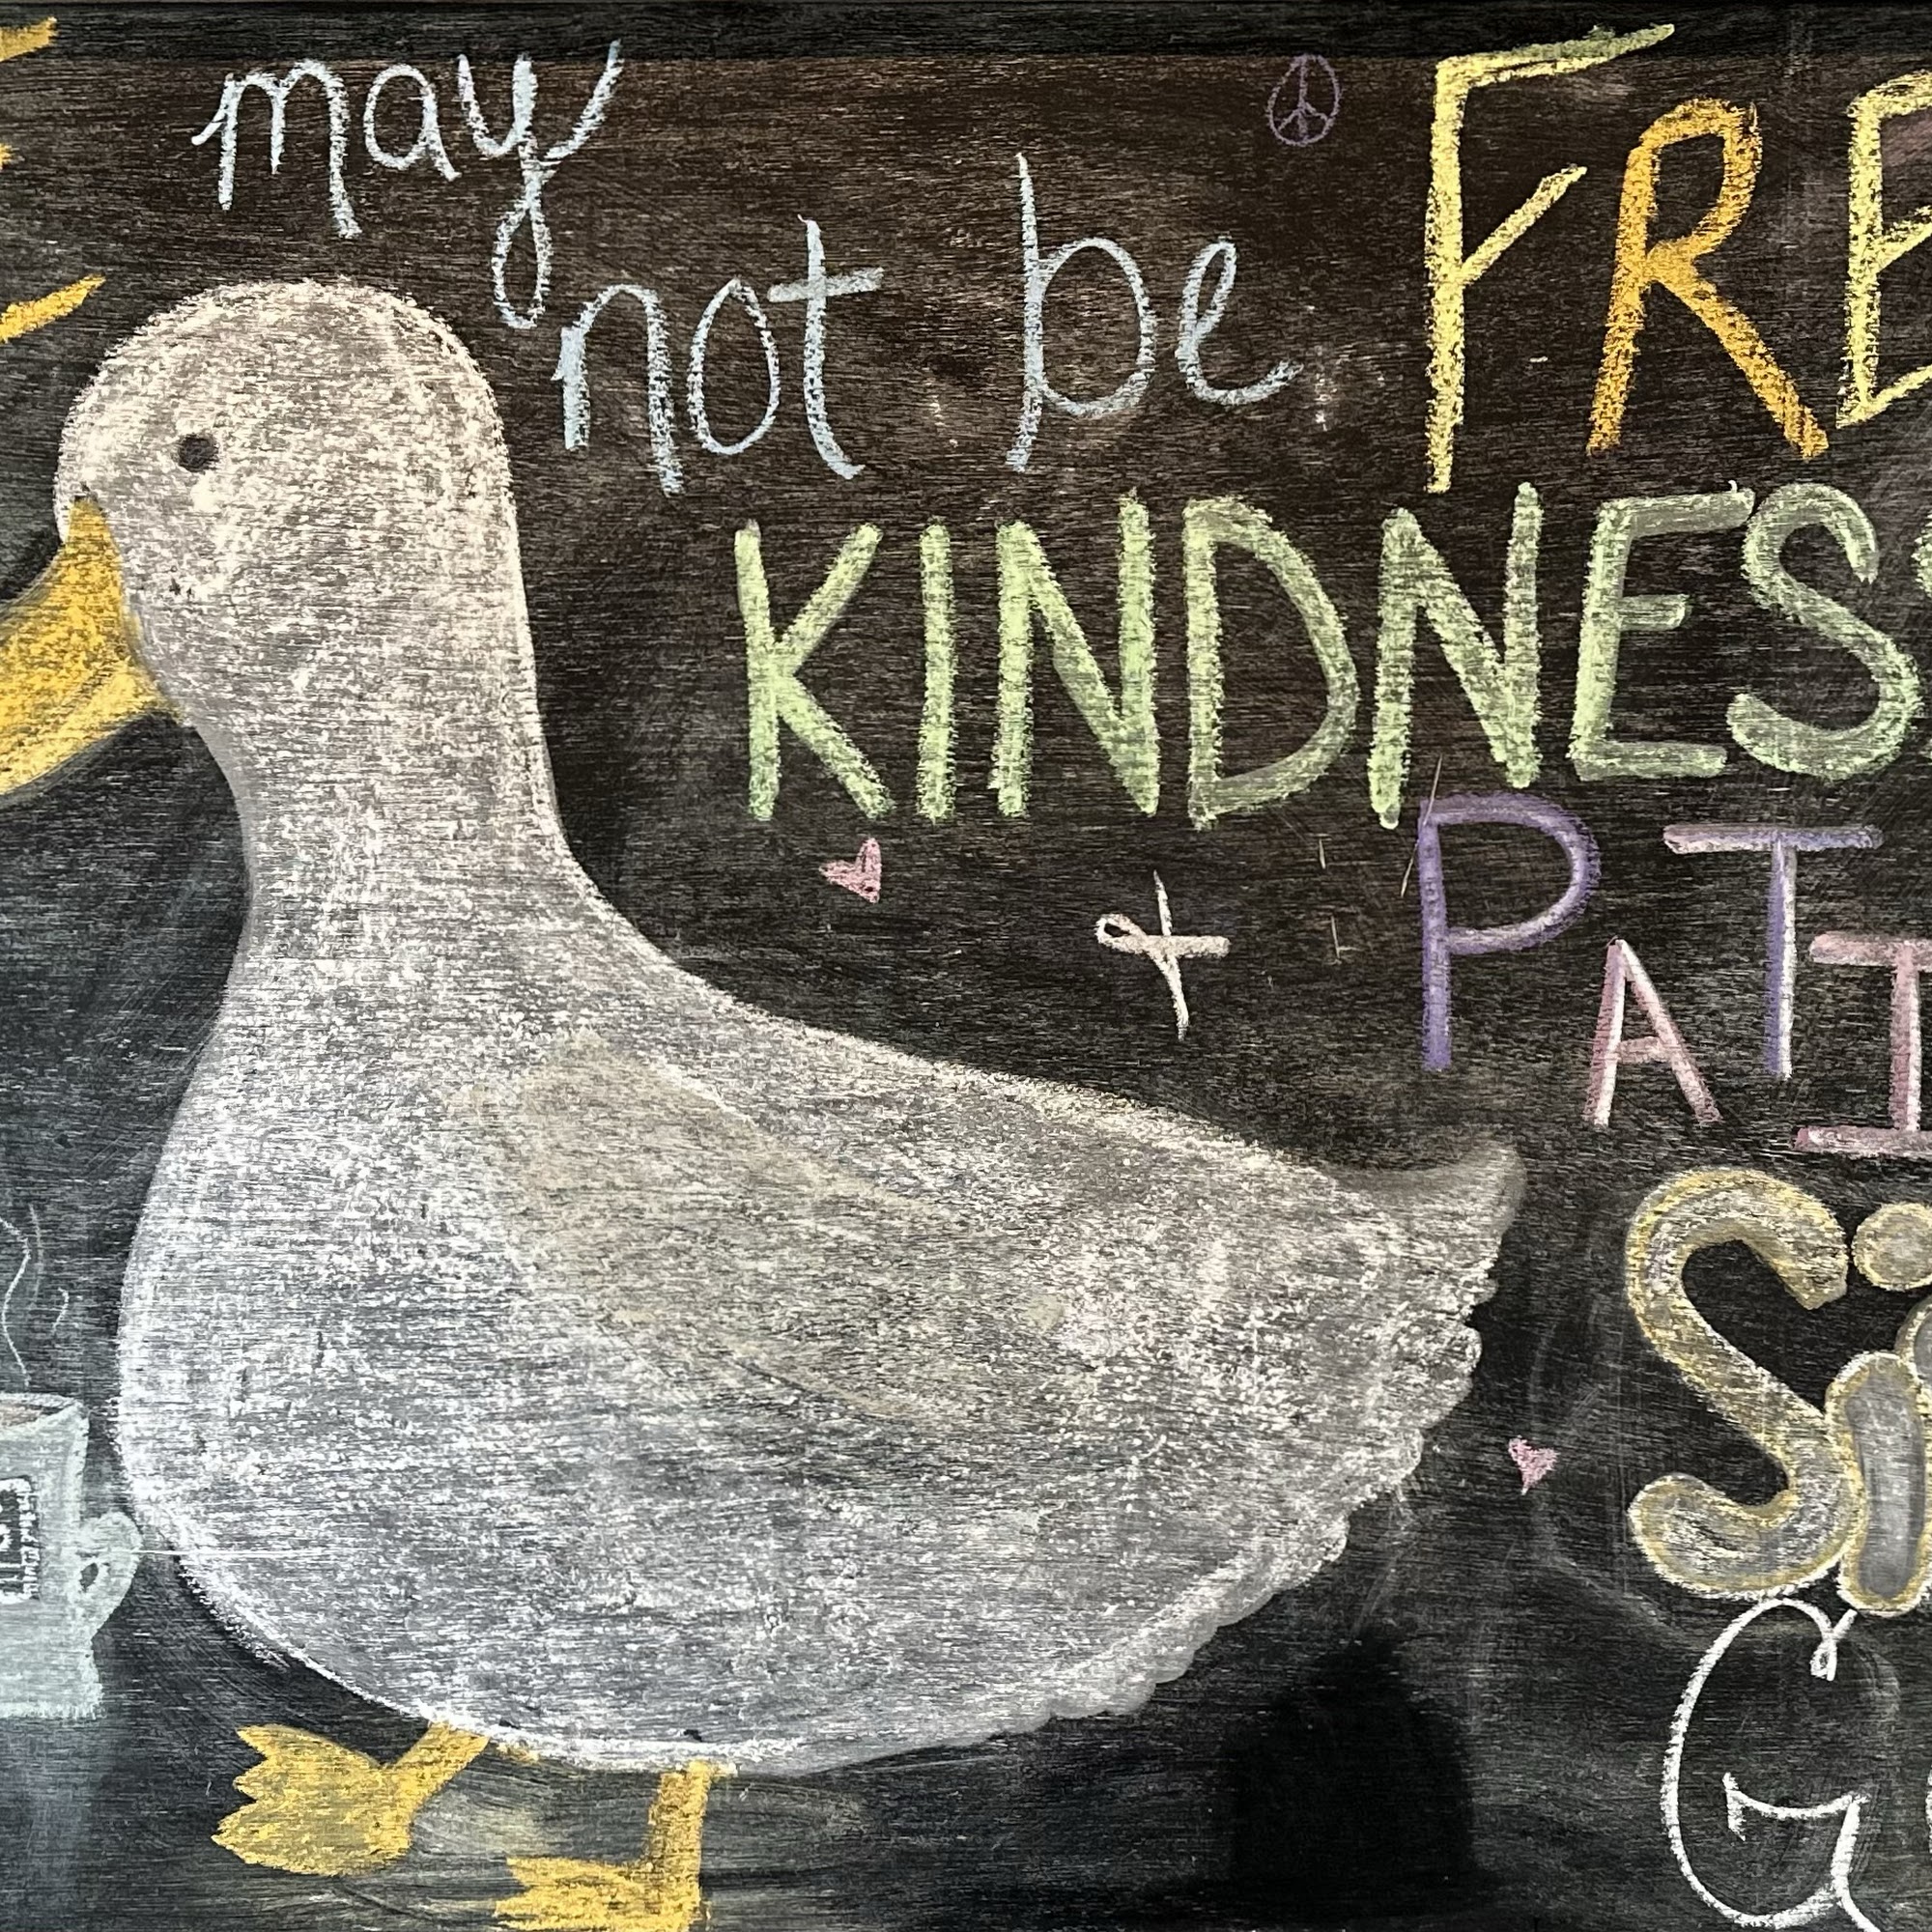 may
not be FRE
KINDNESS
+ PATI
Si
G